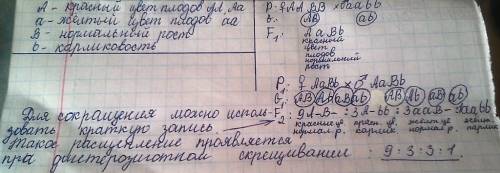 A - красный цвет плодов АА, Аа
а - жёлтый цвет плодов аа
В - нормальный рост
b - карликовость
P: ♀ AA BB × ♂aa bb
G: AB ab
F₁: A a B b
красный
цвет
плодов
нормальный
рост
P₁: ♀ AaBb × ♂ AaBb
G₁: AB Ab aB ab AB Ab aB ab
Для сокращения можно исполь-
зовать краткую запись.
F₂: 9A-B- : 3A-bb : 3aaB- : 1aabb
красн цв. красн. ц. желт це желт.
нормал р. карлик. нормал р. карлик
Такое расщепление проявляется
при дигетерозиготном скрещивании 9:3:3:1